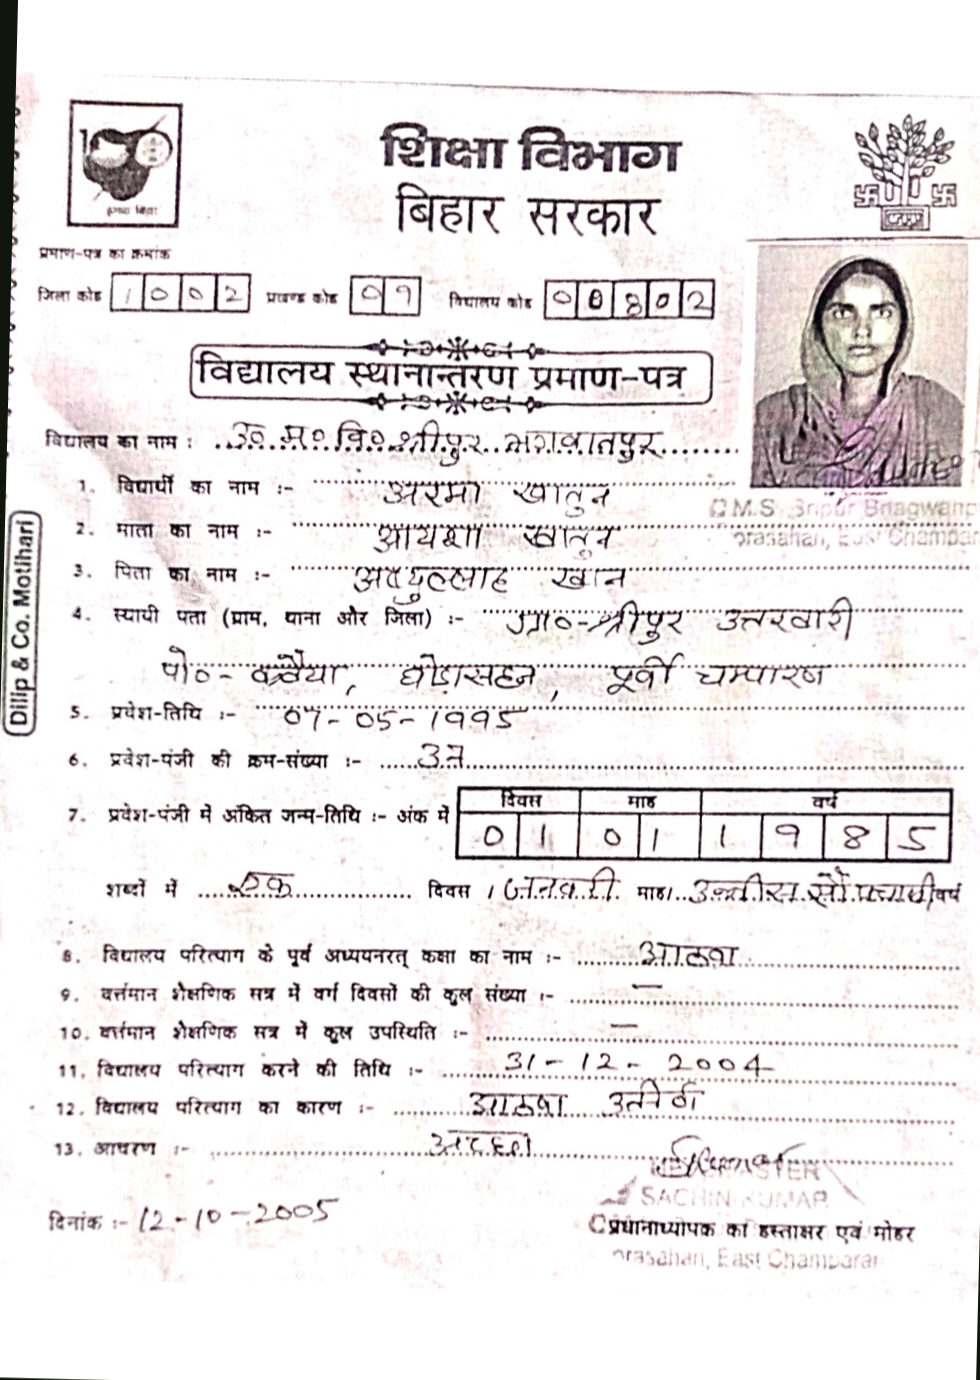 शिक्षा विभाग
बिहार सरकार
प्रमाण-पत्र का क्रमांक
जिला कोड 1002 प्रखण्ड कोड 09 विद्यालय कोड 00802
विद्यालय स्थानान्तरण प्रमाण-पत्र
विद्यालय का नाम : उ० म० वि० श्रीपुर भगवानपुर
1. विद्यार्थी का नाम :- अस्मा खातुन
2. माता का नाम :- आयशा खातुन
3. पिता का नाम :- अबदुल्लाह खान
4. स्थायी पता (ग्राम, थाना और जिला) :- ग्रा०-श्रीपुर उत्तरवारी
पो०- घोड़ासहन, पूर्वी चम्पारण
5. प्रवेश-तिथि :- 07-05-1995
6. प्रवेश-पंजी की क्रम-संख्या :-
7. प्रवेश-पंजी में अंकित जन्म-तिथि :- अंक में दिवस माह वर्ष
0 1 0 1 1 9 8 5
शब्दों में एक दिवस जनवरी माह उन्नीस सौ पचासी वर्ष
8. विद्यालय परित्याग के पूर्व अध्ययनरत् कक्षा का नाम :- आठवा
9. वर्त्तमान शैक्षणिक सत्र में वर्ग दिवसों की कुल संख्या :- —
10. वर्त्तमान शैक्षणिक सत्र में कुल उपस्थिति :- —
11. विद्यालय परित्याग करने की तिथि :- 31-12-2004
12. विद्यालय परित्याग का कारण :- आठवा उत्तीर्ण
13. आचरण :- अच्छा
दिनांक :- 12-10-2005
SACHIN KUMAR
प्रधानाध्यापक का हस्ताक्षर एवं मोहर
East Champaran
Dilip & Co. Motihari
U.M.S. Sripur Bhagwanp
East Champar